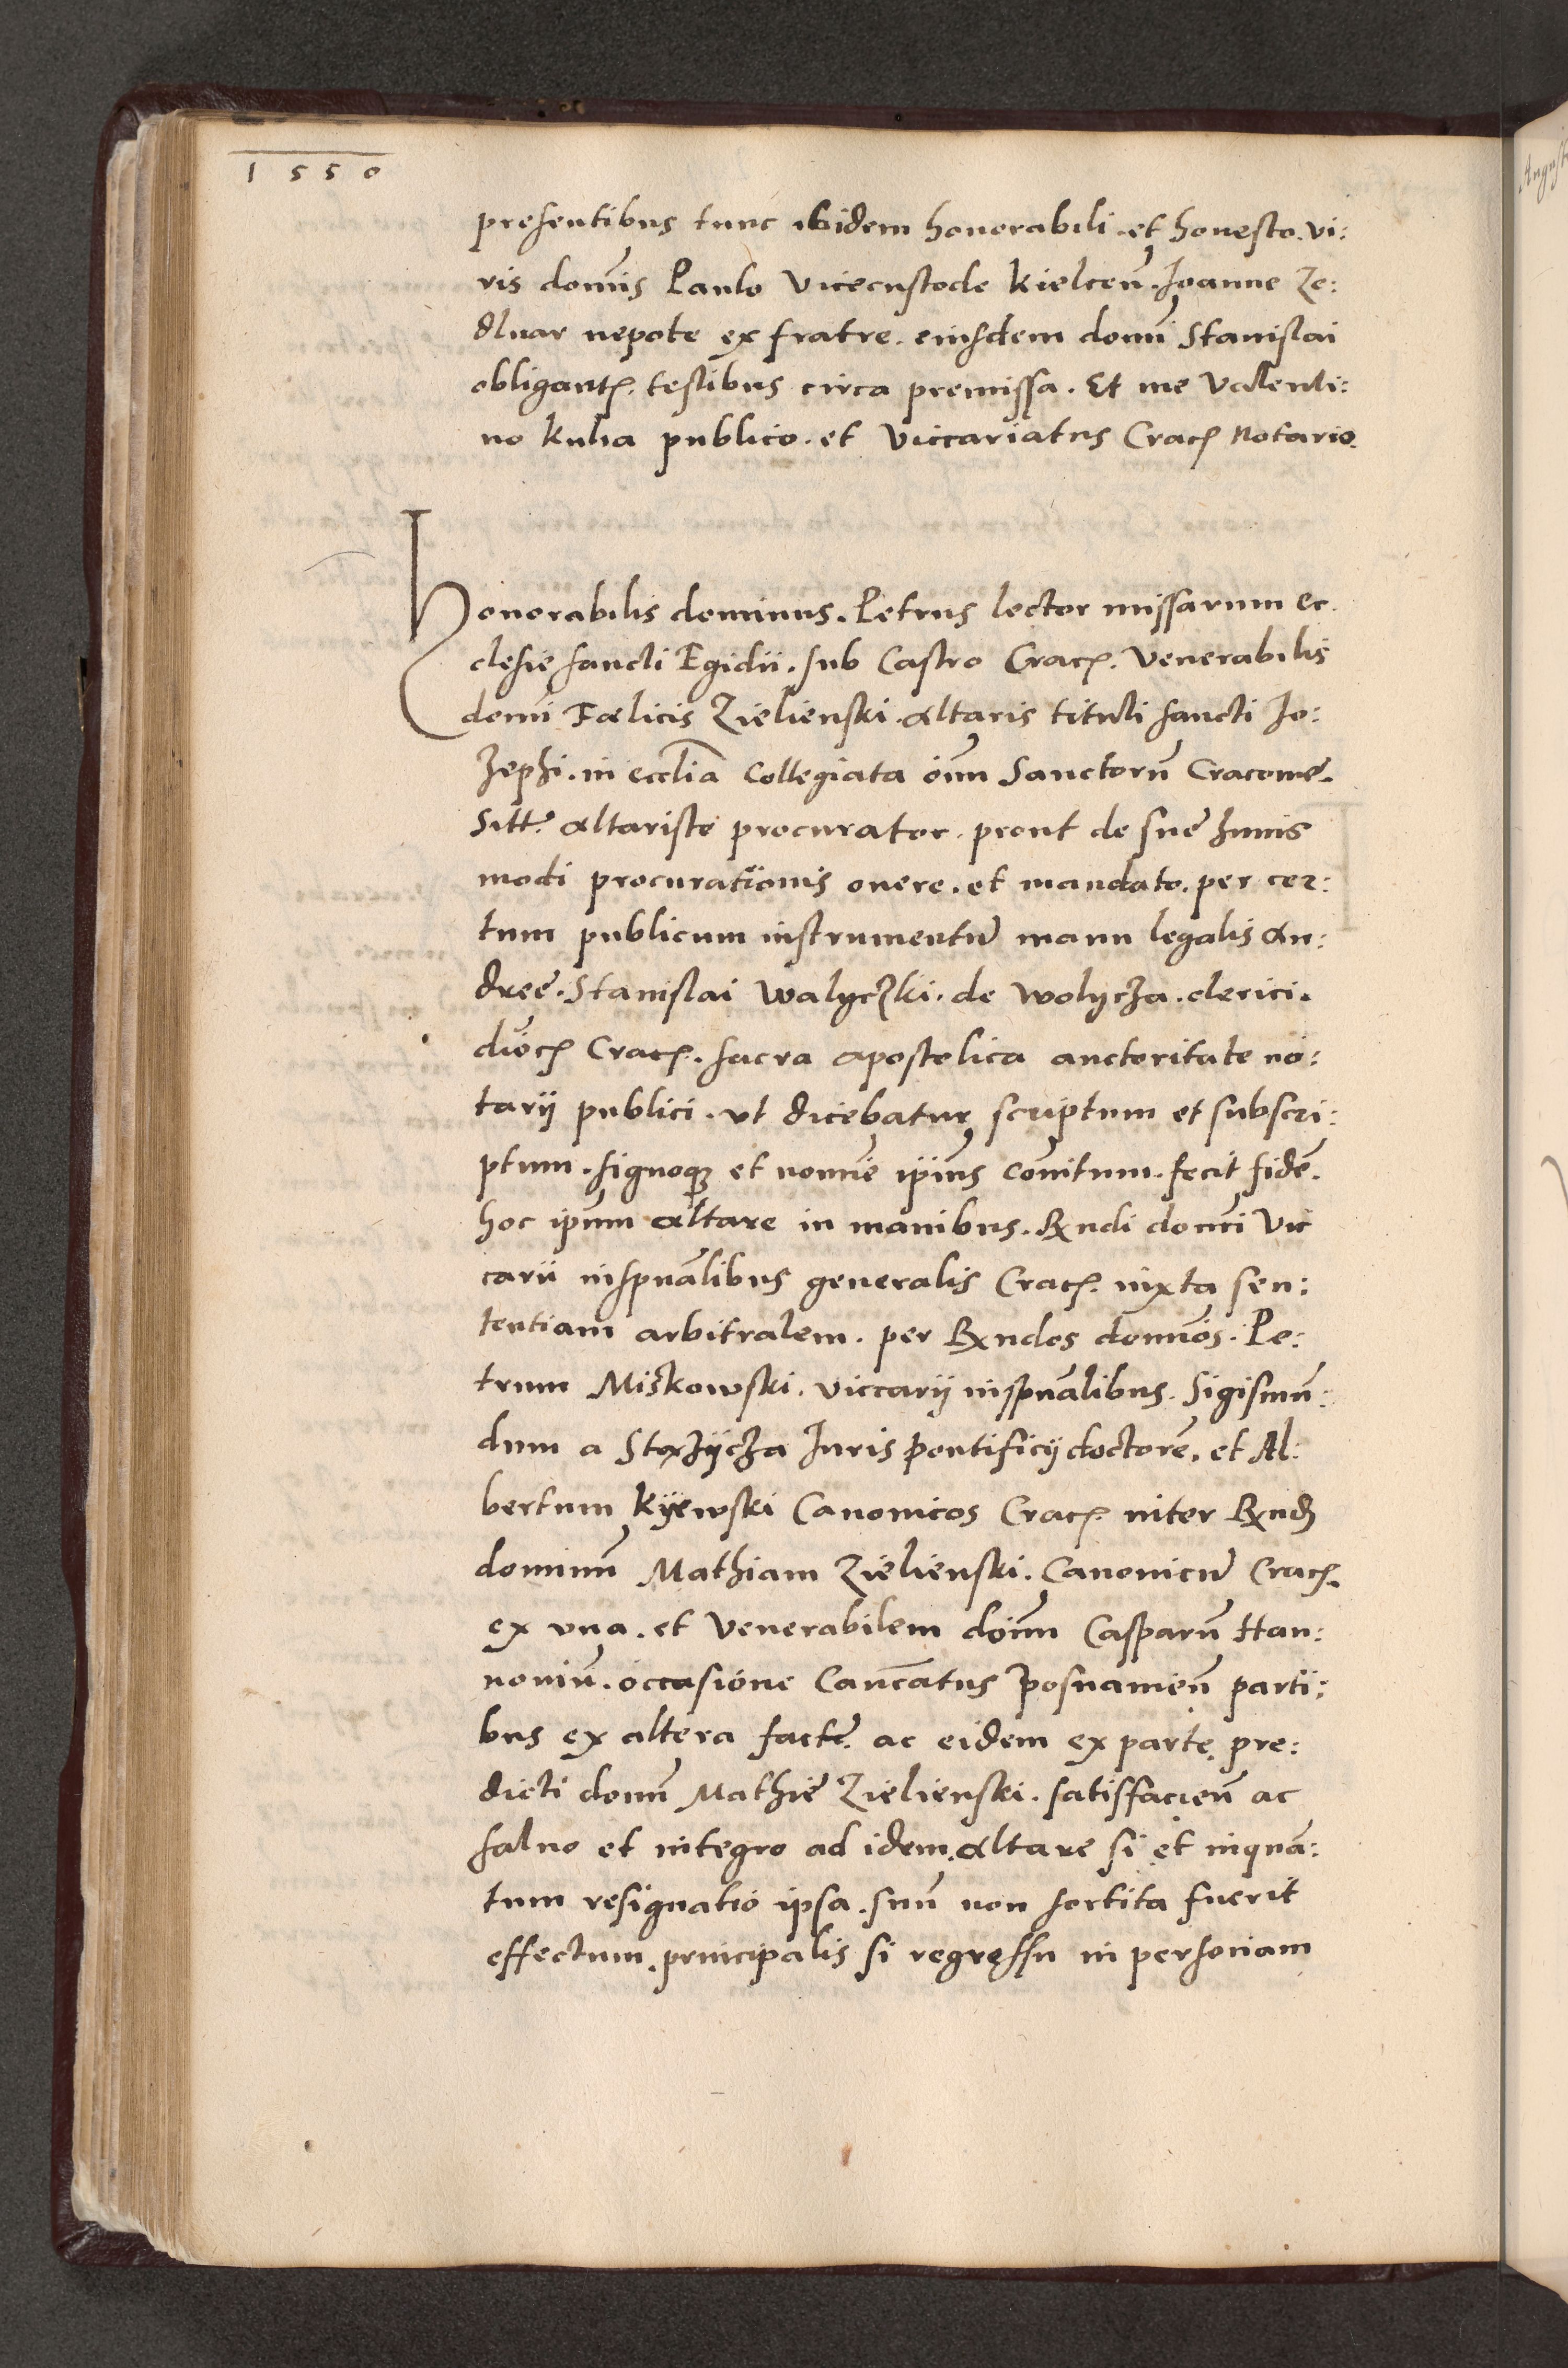 1550
presentibus tunc ibidem honorabili. et honesto. vi:
ris domīs Paulo Vicecustode Kielceñ. Joanne Ze:
dluar nepote ex fratre. eiusdem domī Stanislai
obligant. testibus circa premissa. Et me Valenti:
no Kulia publico. et Viccariatus Crac. Notario.
Honorabilis dominus. Petrus lector missarum ec
clesie sancti Egidii. sub Castro Crac. Venerabilis
domī Fœlicis Zielienski. altaris tituli sancti Jo:
zephi. in ecclīa Collegiata oīm Sanctorū Cracovie.
Altariste procurator. prout de sue huius
modi procurationis onere. et mandato. per cer:
tum publicum instrumentū manu legalis An:
dree. Stanislai Walyczki. de Wolycza. clerici.
dioc Crac. sacra apostolica auctoritate no:
tarij publici. ut dicebatur scriptum et subscri:
ptum. signoq; et nomīe ip̄ius cōnitum. fecit fidē.
hoc ip̄um altare in manibus. Rx̄ndi domīni Vic
carii inspūalibus generalis Crac. iuxta sen:
tentiam arbitralem. per Rx̄ndos domīos. Pe:
trum Miskowski. viccarij inspūalibus. Sigismū:
dum a Stezijcza Juris pontificij doctorē. et Al:
bertum Kijewski Canonicos Crac. inter Rx̄nd
dominū Mathiam Zielienski. Canonicū Crac.
ex una. et Venerabilem doīm Casparū Han:
noviū. occasione Canc̄atus Posnanieñ parti:
bus ex altera facte. ac eidem ex parte pre:
dicti domī Mathie Zielienski. satisfacieñ ac
salvo et integro ad idem altare si et inquā:
tum resignatio ipsa. suū non sortita fuerit
effectum. principalis si regressu in personam